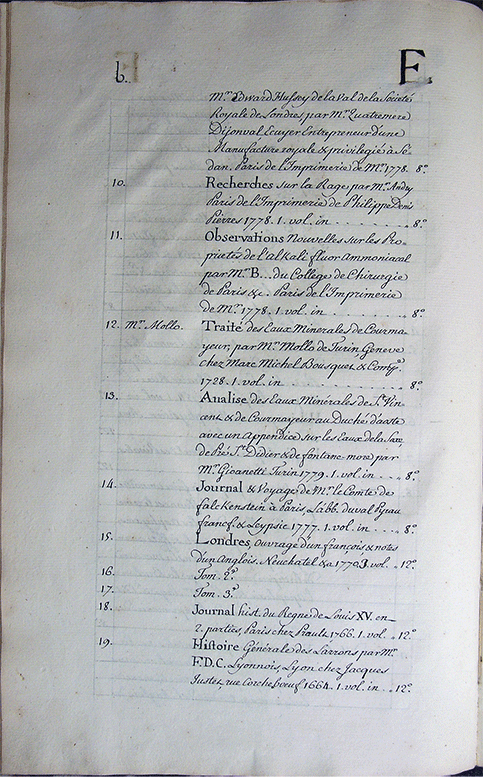 b. E
M.r Edward Hussey de la Val de la Societé
Royale de Londres, par M.r Quatremere
Dijonval Ecuyer Entrepreneur d'une
Manufacture royale & privilegié à Sé-
dan. Paris de l'Imprimerie de M.r 1778. 8.º
10. Recherches sur la Rage par M.r Andry
Paris de l'Imprimerie de Philippe Denis
Pierres 1778. 1. vol. in . . . . . . . . 8.º
11. Observations Nouvelles sur les Pro-
prietés de l'alkali fluor Ammoniacal
par M.r B... du College de Chirurgie
de Paris &c. Paris de l'Imprimerie
de M.r 1778. 1. vol. in . . . . . . . 8.º
12. M.r Mollo. Traité des Eaux Minerales de Courma
yeur, par M.r Mollo de Turin, Geneve
chez Marc Michel Bousquet & Comp.e
1728. 1. vol. in . . . . . . . . . . . . 8.º
13. Analise des Eaux Minérales de S.t Vin
cent & de Courmayeur au Duché d'aoste
avec un Appendice sur les Eaux de la Saxe,
de Pré S.t Didier & de fontane more par
M.r Gioanetti Turin 1779. 1. vol. in . . 8.º
14. Journal & Voyage de M.r le Comte de
falckenstein à Paris, L'abb. duval Pyrau
francf. & Leypsic 1777. 1. vol. in . . . 8.º
15. Londres, Ouvrage d'un françois & notes
d'un Anglois. Neuchatel &a 1770. 3. vol. . 12.º
16. Tom. 2.º
17. Tom. 3.º
18. Journal hist. du Regne de Louis XV. en
2. parties, Paris chez Prault 1766. 1. vol. . 12.º
19. Histoire Générale des Larrons par M.r
F. D. C. Lyonnois, Lyon chez Jacques
Justet, rue Corchebœuf 1664. 1. vol. in . . 12.º